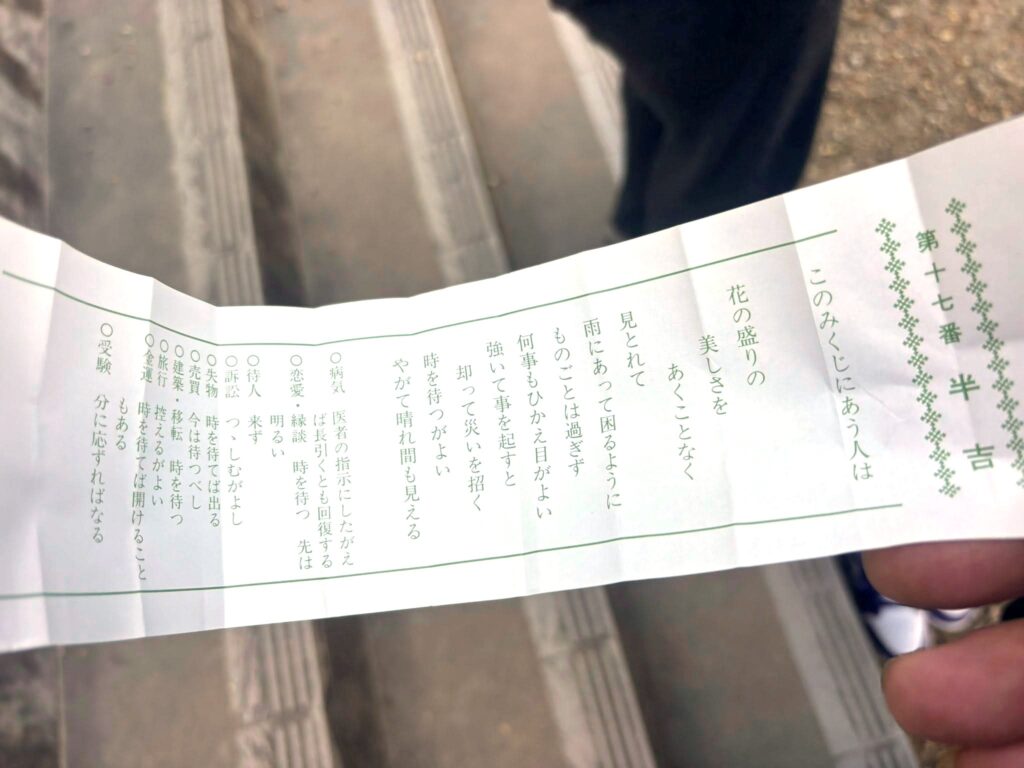 第十七番 半吉
このみくじにあう人は
花の盛りの
美しさを
あくことなく
見とれて
雨にあって困るように
ものごとは過ぎず
何事もひかえ目がよい
強いて事を起すと
却って災いを招く
時を待つがよい
やがて晴れ間も見える
○病気 医者の指示にしたがえ
ば長引くとも回復する
○恋愛・縁談 時を待つ 先は
明るい
○待人 来ず
○訴訟 つゝしむがよし
○失物 時を待てば出る
○売買 今は待つべし
○建築・移転 時を待つ
○旅行 控えるがよい
○金運 時を待てば開けること
もある
○受験 分に応ずればなる